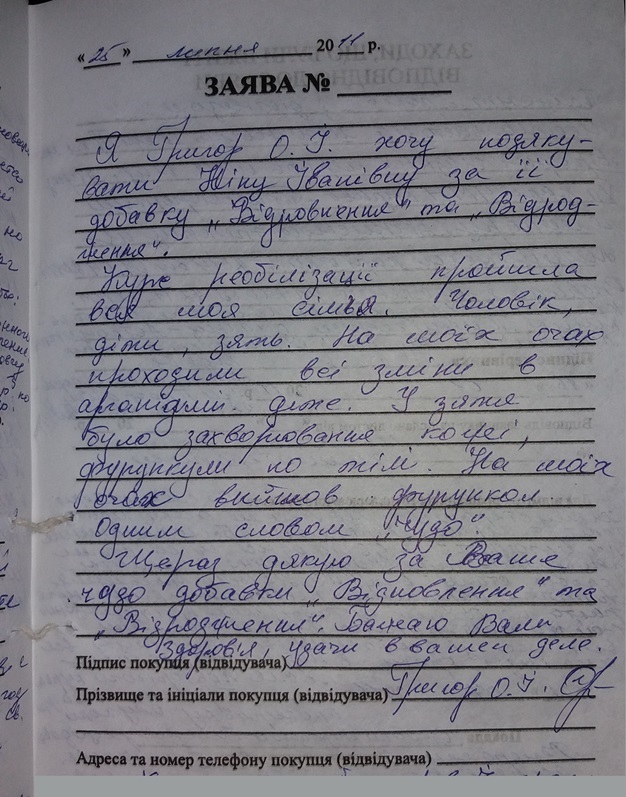 « 25 » липня 2011 р.
ЗАЯВА №
Я Григор О. І. хочу подяку-
вати Ніну Іванівну за її
добавку „Відровнення" та „Відрод-
ження".
Курс реобілізації пройшла
вся моя сімья. Чоловік,
діти, зять. На моїх очах
проходили всі зміни в
У зятя
було захворювання кожі,
фурункули по тілі. На моїх
очах вийшов фурункол
Одним словом „Чудо".
Щераз дякую за Ваше
чудо добавки „Відновлення" та
„Відродження". Бажаю Вам
Здоров'я, удачи в вашем деле.
Підпис покупця (відвідувача)
Прізвище та ініціали покупця (відвідувача) Григор О. І.
Адреса та номер телефону покупця (відвідувача)